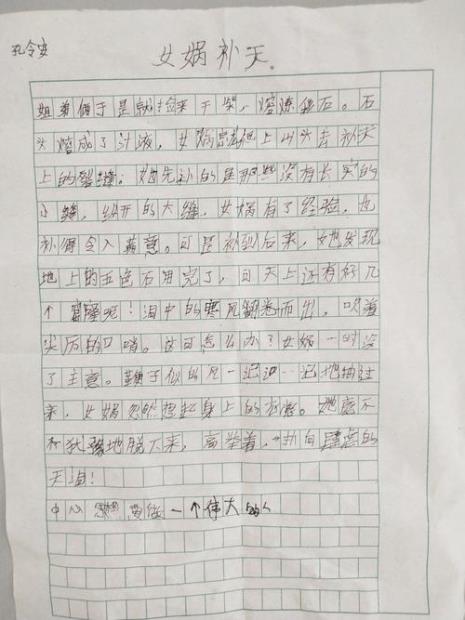 孔令安
女娲补天.
姐弟俩于是就捡来干柴,熔炼石。石
头熔成了汁液,女娲端他上山头去补天
上的裂缝。她先补的是那些没有长实的
小缝,绽开的大缝,女娲有了经验,也
补得令人满意。可是补到后来,她发现
地上的五色石用完了,可天上还有好几
个窟窿呢!洞中的寒风翻卷而出,吹着
尖厉的口哨。这可怎么办?女娲一时没
了主意。鞭子似的风一遍又一遍地抽过
来,女娲忽然想起身上的衣。她毫不
犹豫地脱下来,高举着,扑向的
天洞!
中心思想 一个伟大的人